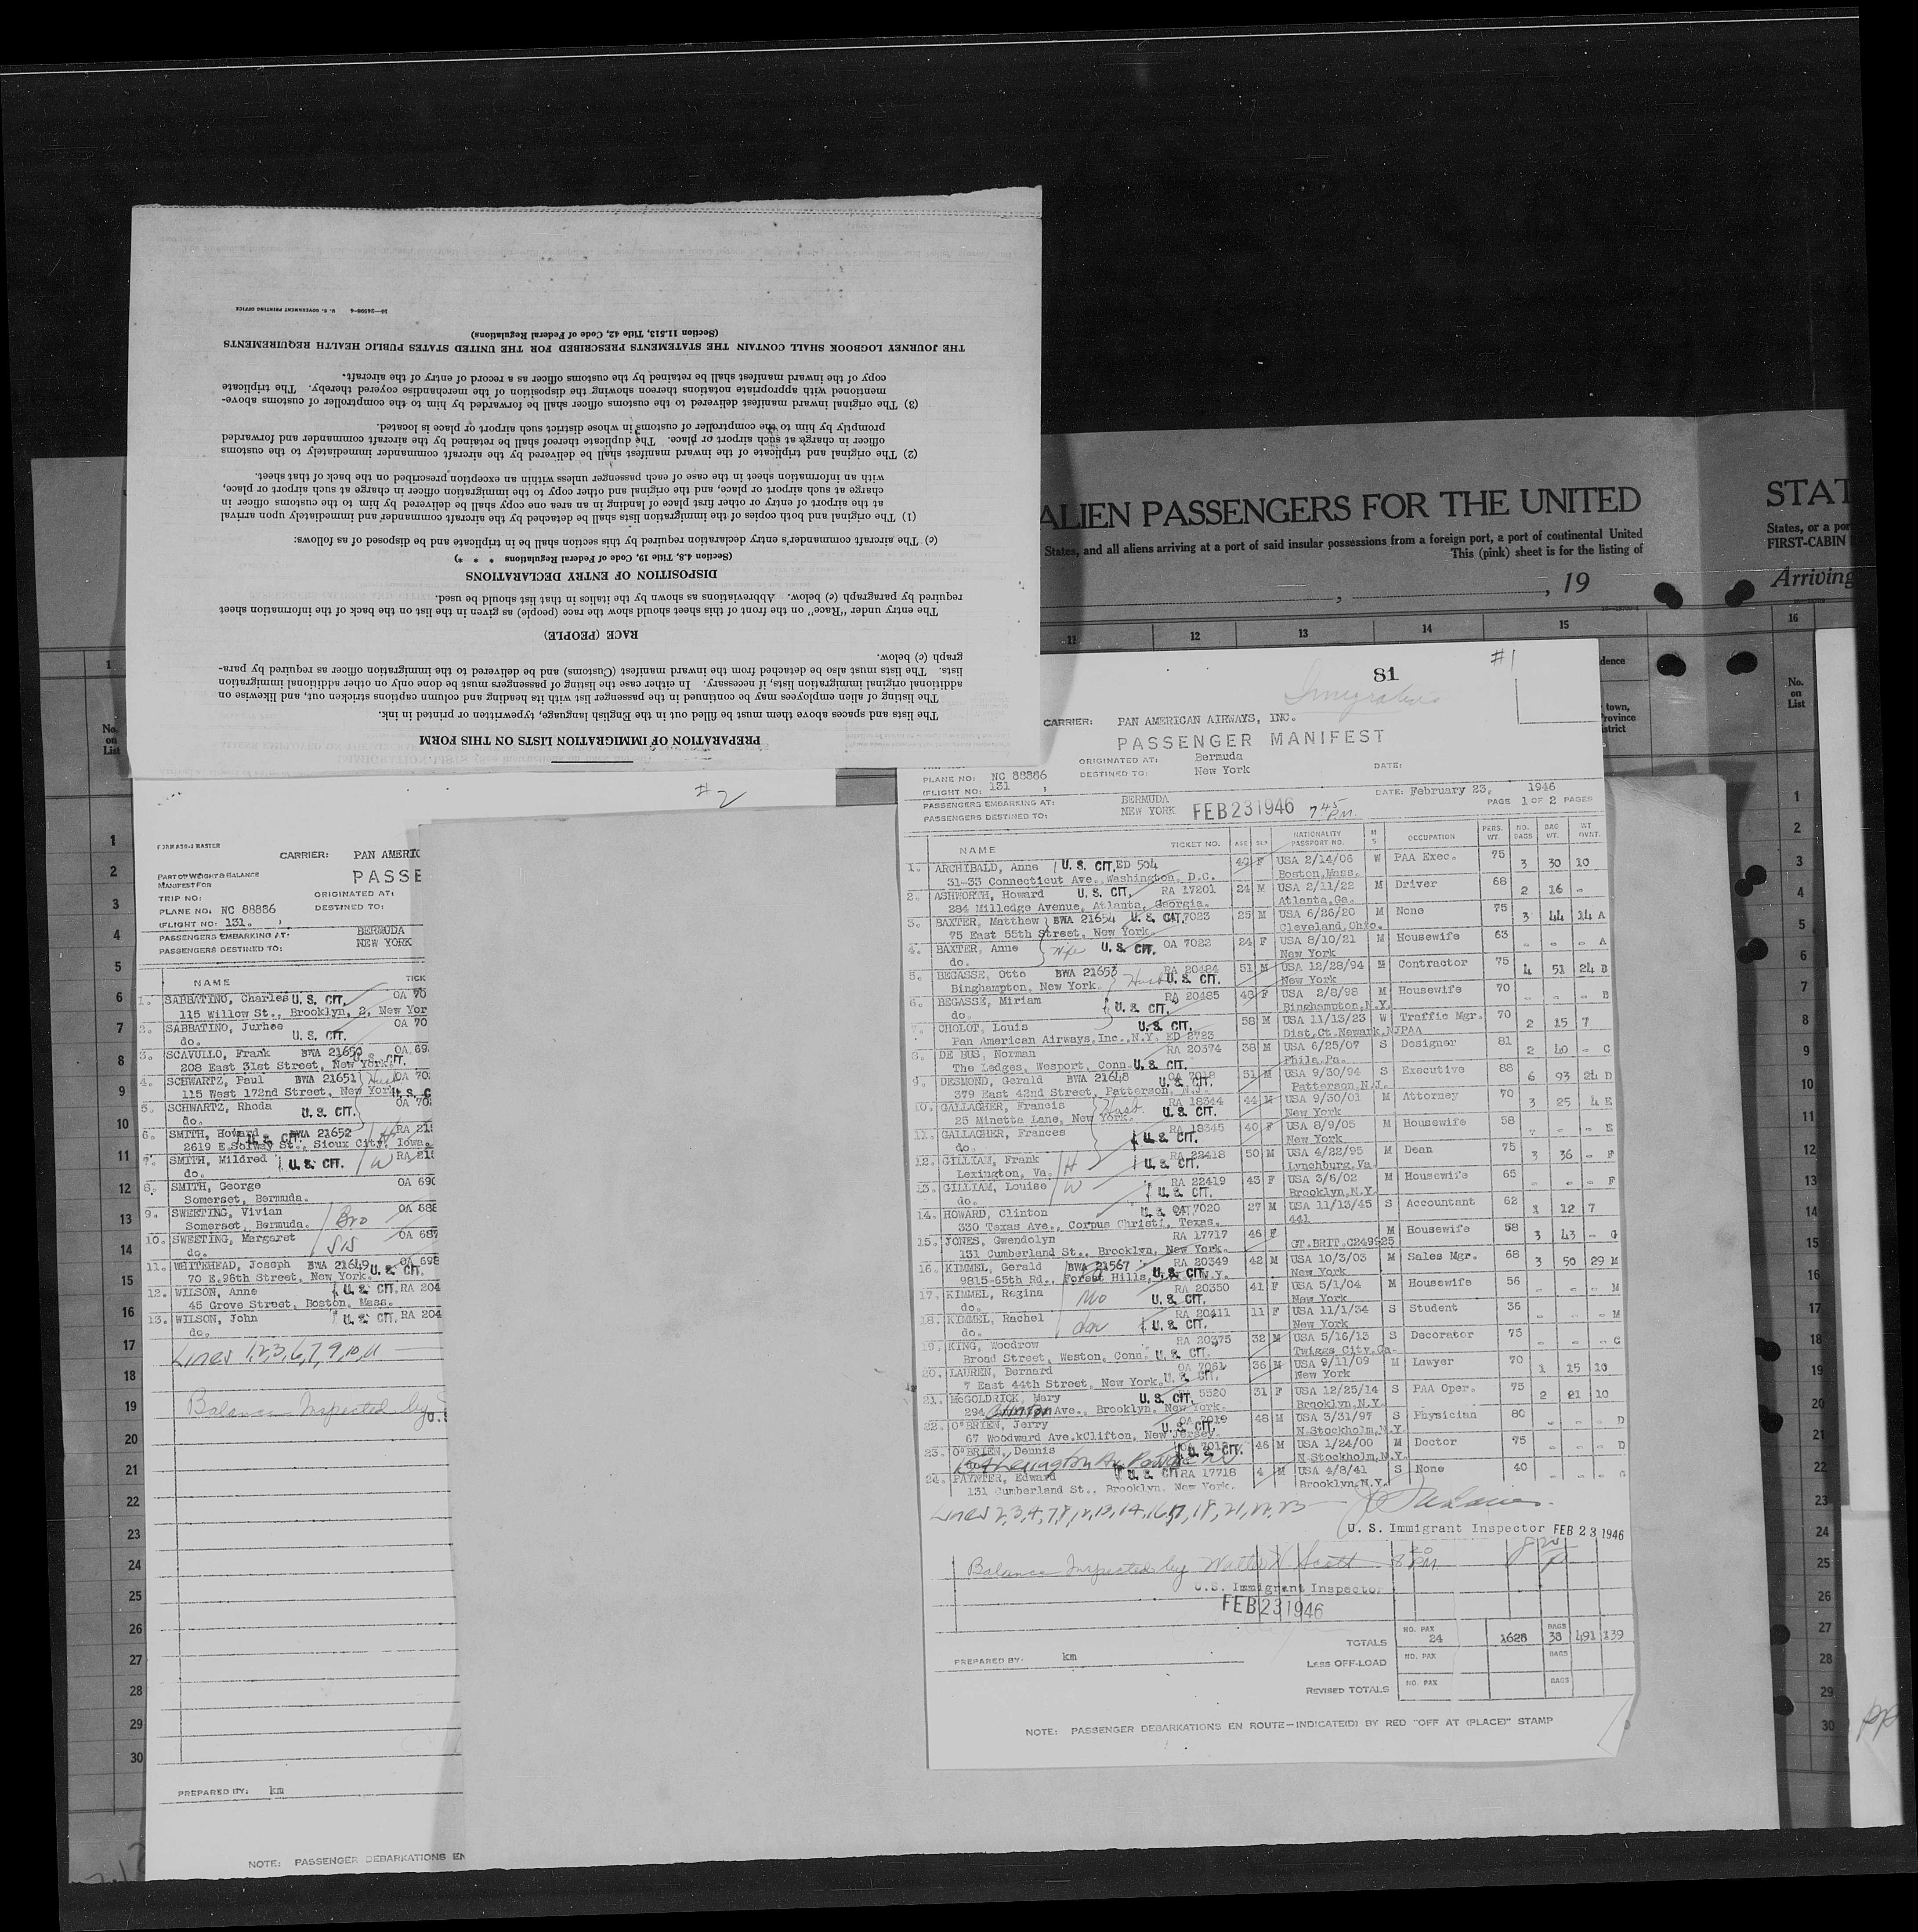 PREPARATION OF IMMIGRATION LISTS ON THIS FORM
The lists and spaces above them must be filled out in the English language, typewritten or printed in ink.
The listing of alien employees may be continued in the passenger list with its heading and column captions stricken out, and likewise on
additional original immigration lists, if necessary. In either case the listing of passengers must be done only on other additional immigration
lists. The lists must also be detached from the inward manifest (Customs) and be delivered to the immigration officer as required by para-
graph (c) below.
RACE (PEOPLE)
The entry under "Race" on the front of this sheet should show the race (people) as given in the list on the back of the information sheet
required by paragraph (c) below. Abbreviations as shown by the italics in that list should be used.
DISPOSITION OF ENTRY DECLARATIONS
(Section 4.8, Title 19, Code of Federal Regulations * * *)
(c) The aircraft commander's entry declaration required by this section shall be in triplicate and be disposed of as follows:
(1) The original and both copies of the immigration lists shall be detached by the aircraft commander and immediately upon arrival
at the airport of entry or other first place of landing in an area one copy shall be delivered by him to the customs officer in
charge at such airport or place, and the original and other copy to the immigration officer in charge at such airport or place,
with an information sheet in the case of each passenger unless within an exception prescribed on the back of that sheet.
(2) The original and triplicate of the inward manifest shall be delivered by the aircraft commander immediately to the customs
officer in charge at such airport or place. The duplicate thereof shall be retained by the aircraft commander and forwarded
promptly by him to the comptroller of customs in whose district such airport or place is located.
(3) The original inward manifest delivered to the customs officer shall be forwarded by him to the comptroller of customs above-
mentioned with appropriate notations thereon showing the disposition of the merchandise covered thereby. The triplicate
copy of the inward manifest shall be retained by the customs officer as a record of entry of the aircraft.
THE JOURNEY LOGBOOK SHALL CONTAIN THE STATEMENTS PRESCRIBED FOR THE UNITED STATES PUBLIC HEALTH REQUIREMENTS
(Section 11.513, Title 42, Code of Federal Regulations)
U. S. GOVERNMENT PRINTING OFFICE
ALIEN PASSENGERS FOR THE UNITED
States, and all aliens arriving at a port of said insular possessions from a foreign port, a port of continental United
This (pink) sheet is for the listing of
, 19
11 12 13 14 15
STAT
States, or a por
FIRST-CABIN
Arriving
16
No. on List
#2
CARRIER: PAN AMERIC
PASSE
PART OF WEIGHT & BALANCE
MANIFEST FOR
TRIP NO:
ORIGINATED AT:
PLANE NO: NC 88886 DESTINED TO:
(FLIGHT NO: 131. )
PASSENGERS EMBARKING AT: BERMUDA
PASSENGERS DESTINED TO: NEW YORK
NAME TICK
1. SABBATINO, Charles U. S. CIT. OA 70
115 Willow St., Brooklyn, 2, New Yor
2. SABBATINO, Jurhee OA 70
do. U. S. CIT.
3. SCAVULLO, Frank BWA 21650 OA 69
208 East 31st Street, New York. U. S. CIT.
4. SCHWARTZ, Paul BWA 21651 Husb OA 70
115 West 172nd Street, New York U. S. C
5. SCHWARTZ, Rhoda U. S. CIT. OA 70
do.
6. SMITH, Howard U. S. CIT. BWA 21652 H RA 21
2619 E Solway St., Sioux City, Iowa.
7. SMITH, Mildred U. S. CIT. W RA 21
do.
8. SMITH, George OA 690
Somerset, Bermuda.
9. SWEETING, Vivian Bro OA 688
Somerset, Bermuda.
10. SWEETING, Margaret Sis OA 687
do.
11. WHITEHEAD, Joseph BWA 21649 OA 698
70 E.96th Street, New York. U. S. CIT.
12. WILSON, Anne U. S. CIT. RA 204
45 Grove Street, Boston, Mass.
13. WILSON, John U. S. CIT. RA 204
do.
Lines 1,2,3,6,7,9,10,11
Balance Inspected by U.S
PREPARED BY: km
NOTE: PASSENGER DEBARKATIONS EN
81
#1
Immigration
CARRIER: PAN AMERICAN AIRWAYS, INC.
PASSENGER MANIFEST
ORIGINATED AT: Bermuda
PLANE NO: NC 88886 DESTINED TO: New York DATE:
(FLIGHT NO: 131 )
DATE: February 23, 1946
PASSENGERS EMBARKING AT: BERMUDA PAGE 1 OF 2 PAGES
PASSENGERS DESTINED TO: NEW YORK FEB 23 1946 7 45 PM
NAME TICKET NO. AGE SEX NATIONALITY PASSPORT NO. M S OCCUPATION PERS. WT. NO. BAGS BAG WT. WT OVWT.
1. ARCHIBALD, Anne U. S. CIT. ED 504 49 F USA 2/14/06 W PAA Exec. 75 3 30 10
31-33 Connecticut Ave., Washington, D.C. Boston, Mass.
2. ASHWORTH, Howard U. S. CIT. RA 17201 24 M USA 2/11/22 M Driver 68 2 16 -
284 Milledge Avenue, Atlanta, Georgia. Atlanta, Ga.
3. BAXTER, Matthew BWA 21654 U. S. CIT. 7023 25 M USA 6/26/20 M None 75 3 44 14 A
75 East 55th Street, New York. Cleveland, Ohio.
4. BAXTER, Anne Wife U. S. CIT. OA 7022 24 F USA 8/10/21 M Housewife 63 - - - A
do. New York
5. BEGASSE, Otto BWA 21653 RA 20484 51 M USA 12/28/94 M Contractor 75 4 51 24 B
Binghampton, New York. Husb U. S. CIT. New York
6. BEGASSE, Miriam RA 20485 48 F USA 2/8/98 M Housewife 70 - - - B
do. U. S. CIT. Binghampton, N.Y.
7. CHOLOT, Louis U. S. CIT. 58 M USA 11/13/23 W Traffic Mgr. 70 2 15 7
Pan American Airways, Inc., N.Y. ED 2723 Dist.Ct.Newark, NJ PAA
8. DE BUS, Norman RA 20374 38 M USA 6/25/07 S Designer 81 2 40 - C
The Ledges, Wesport, Conn. U. S. CIT. Phila. Pa.
9. DESMOND, Gerald BWA 21648 OA 7018 51 M USA 9/30/94 S Executive 88 6 93 24 D
379 East 42nd Street, Patterson, N.J. U. S. CIT. Patterson, N.J.
10. GALLAGHER, Francis Husb. RA 18344 44 M USA 9/30/01 M Attorney 70 3 25 4 E
25 Minetta Lane, New York. U. S. CIT. New York
11. GALLAGHER, Frances RA 18345 40 F USA 8/9/05 M Housewife 58 - - - E
do. U. S. CIT. New York
12. GILLIAM, Frank H RA 22418 50 M USA 4/22/95 M Dean 75 3 36 - F
Lexington, Va. U. S. CIT. Lynchburg, Va.
13. GILLIAM, Louise W RA 22419 43 F USA 3/6/02 M Housewife 65 - - - F
do. U. S. CIT. Brooklyn, N.Y.
14. HOWARD, Clinton U. S. CIT. 7020 27 M USA 11/13/45 S Accountant 62 1 12 7
330 Texas Ave., Corpus Christi, Texas. 441
15. JONES, Gwendolyn RA 17717 46 F M Housewife 58 3 43 - G
131 Cumberland St., Brooklyn, New York. GT.BRIT.C249925
16. KIMMEL, Gerald BWA 21567 RA 20349 42 M USA 10/3/03 M Sales Mgr. 68 3 50 29 M
9815-65th Rd., Forest Hills, N.Y. U. S. CIT. New York
17. KIMMEL, Regina Mo RA 20350 41 F USA 5/1/04 M Housewife 56 - - - M
do. U. S. CIT. New York
18. KIMMEL, Rachel da RA 20411 11 F USA 11/1/34 S Student 36 - - - M
do. U. S. CIT. New York
19. KING, Woodrow RA 20375 32 M USA 5/16/13 S Decorator 75 - - - C
Broad Street, Weston, Conn. U. S. CIT. Twiggs City, Ga.
20. LAUREN, Bernard OA 7061 36 M USA 9/11/09 M Lawyer 70 1 15 10
7 East 44th Street, New York. U. S. CIT. New York
21. McGOLDRICK, Mary U. S. CIT. 5520 31 F USA 12/25/14 S PAA Oper. 75 2 21 10
294 Clinton Ave., Brooklyn, New York. Brooklyn, N.Y.
22. O'BRIEN, Jerry OA 7019 48 M USA 3/31/97 S Physician 80 - - - D
67 Woodward Ave.kClifton, New Jersey. U. S. CIT. N.Stockholm, N.Y.
23. O'BRIEN, Dennis U. S. CIT. 46 M USA 1/24/00 M Doctor 75 - - - D
Lexington Av. N.Stockholm, N.Y.
24. PAYNTER, Edward U. S. CIT RA 17718 4 M USA 4/8/41 S None 40 - - - G
131 Cumberland St., Brooklyn, New York. Brooklyn, N.Y.
Lines 2,3,4,7,8,12,13,14,16,17,18,21,22,23
U. S. Immigrant Inspector FEB 23 1946
Balance Inspected by Walter N. Scott 8 20 PM
U.S. Immigrant Inspector
FEB 23 1946
TOTALS NO. PAX 24 1628 BAGS 38 491 139
PREPARED BY: km
LESS OFF-LOAD NO. PAX BAGS
REVISED TOTALS NO. PAX BAGS
NOTE: PASSENGER DEBARKATIONS EN ROUTE—INDICATE(D) BY RED "OFF AT (PLACE)" STAMP